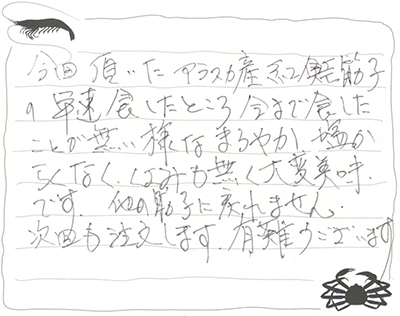 今回頂いた アラスカ産 紅鮭筋子
早速食したところ 今まで食した
ことが無い様なまろやか、塩か
らくなく、くさみも無く大変美味
です. 他の筋子に戻れません.
次回も注文します. 有難うございます